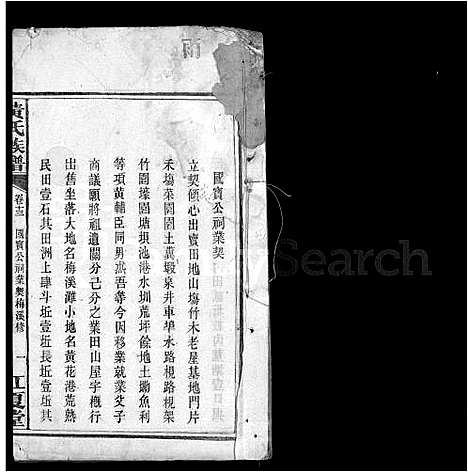 雨
國寶公祠業契
立契傾心出賣田地山塲竹木老屋基地門片
禾塲菜園園土糞塅泉井車埠水路梘路梘架
竹園壕園塘垻池港水圳荒坪餘地土塝魚利
等項黄輔臣同男 吾等今因移業就業父子
商議願將祖遺關分己分之業田山屋宇槪行
出售坐落大地名梅溪灘小地名黄花港荒熟
民田壹石其田洲上肆斗坵壹坵長坵壹坵其
黄氏族譜
卷十三
國寶公祠業契梅溪修
一
江夏堂
Search